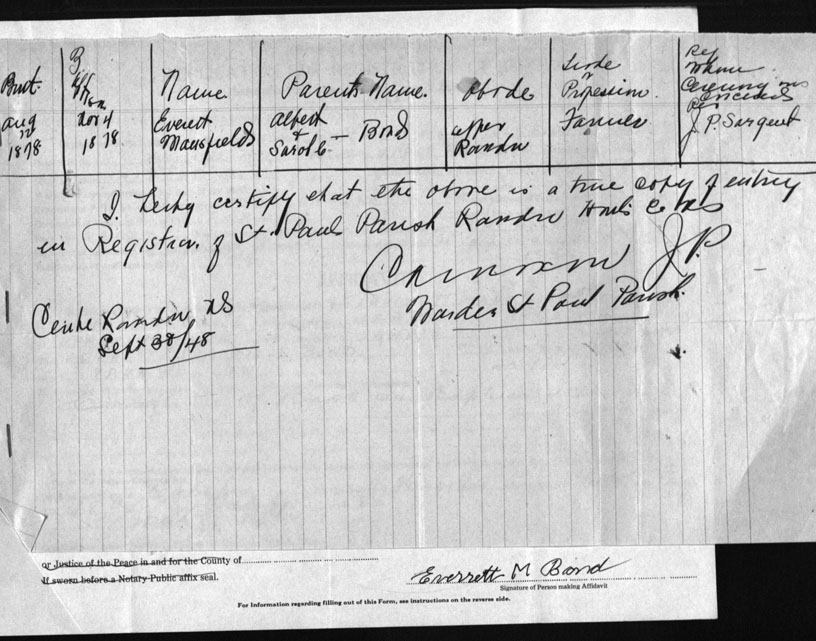 Birth B Name Parents Name. Abode Trade or Profession. Rev Whom Ceremony was
Aug 1878 Nov 4 1878 Everest Mansfield Albert & Sarah E — Bond Upper Rawdon Farmer J. P. Sargent
I hereby certify that the above is a true copy of entry
in Registrar of St. Pauls Parish Rawdon Hants Co NS
J.P.
Warden St Paul Parish.
Centre Rawdon NS
Sept 38/48
or Justice of the Peace in and for the County of
If sworn before a Notary Public affix seal.
Everrett M Bond
Signature of Person making Affidavit
For Information regarding filling out of this Form, see instructions on the reverse side.